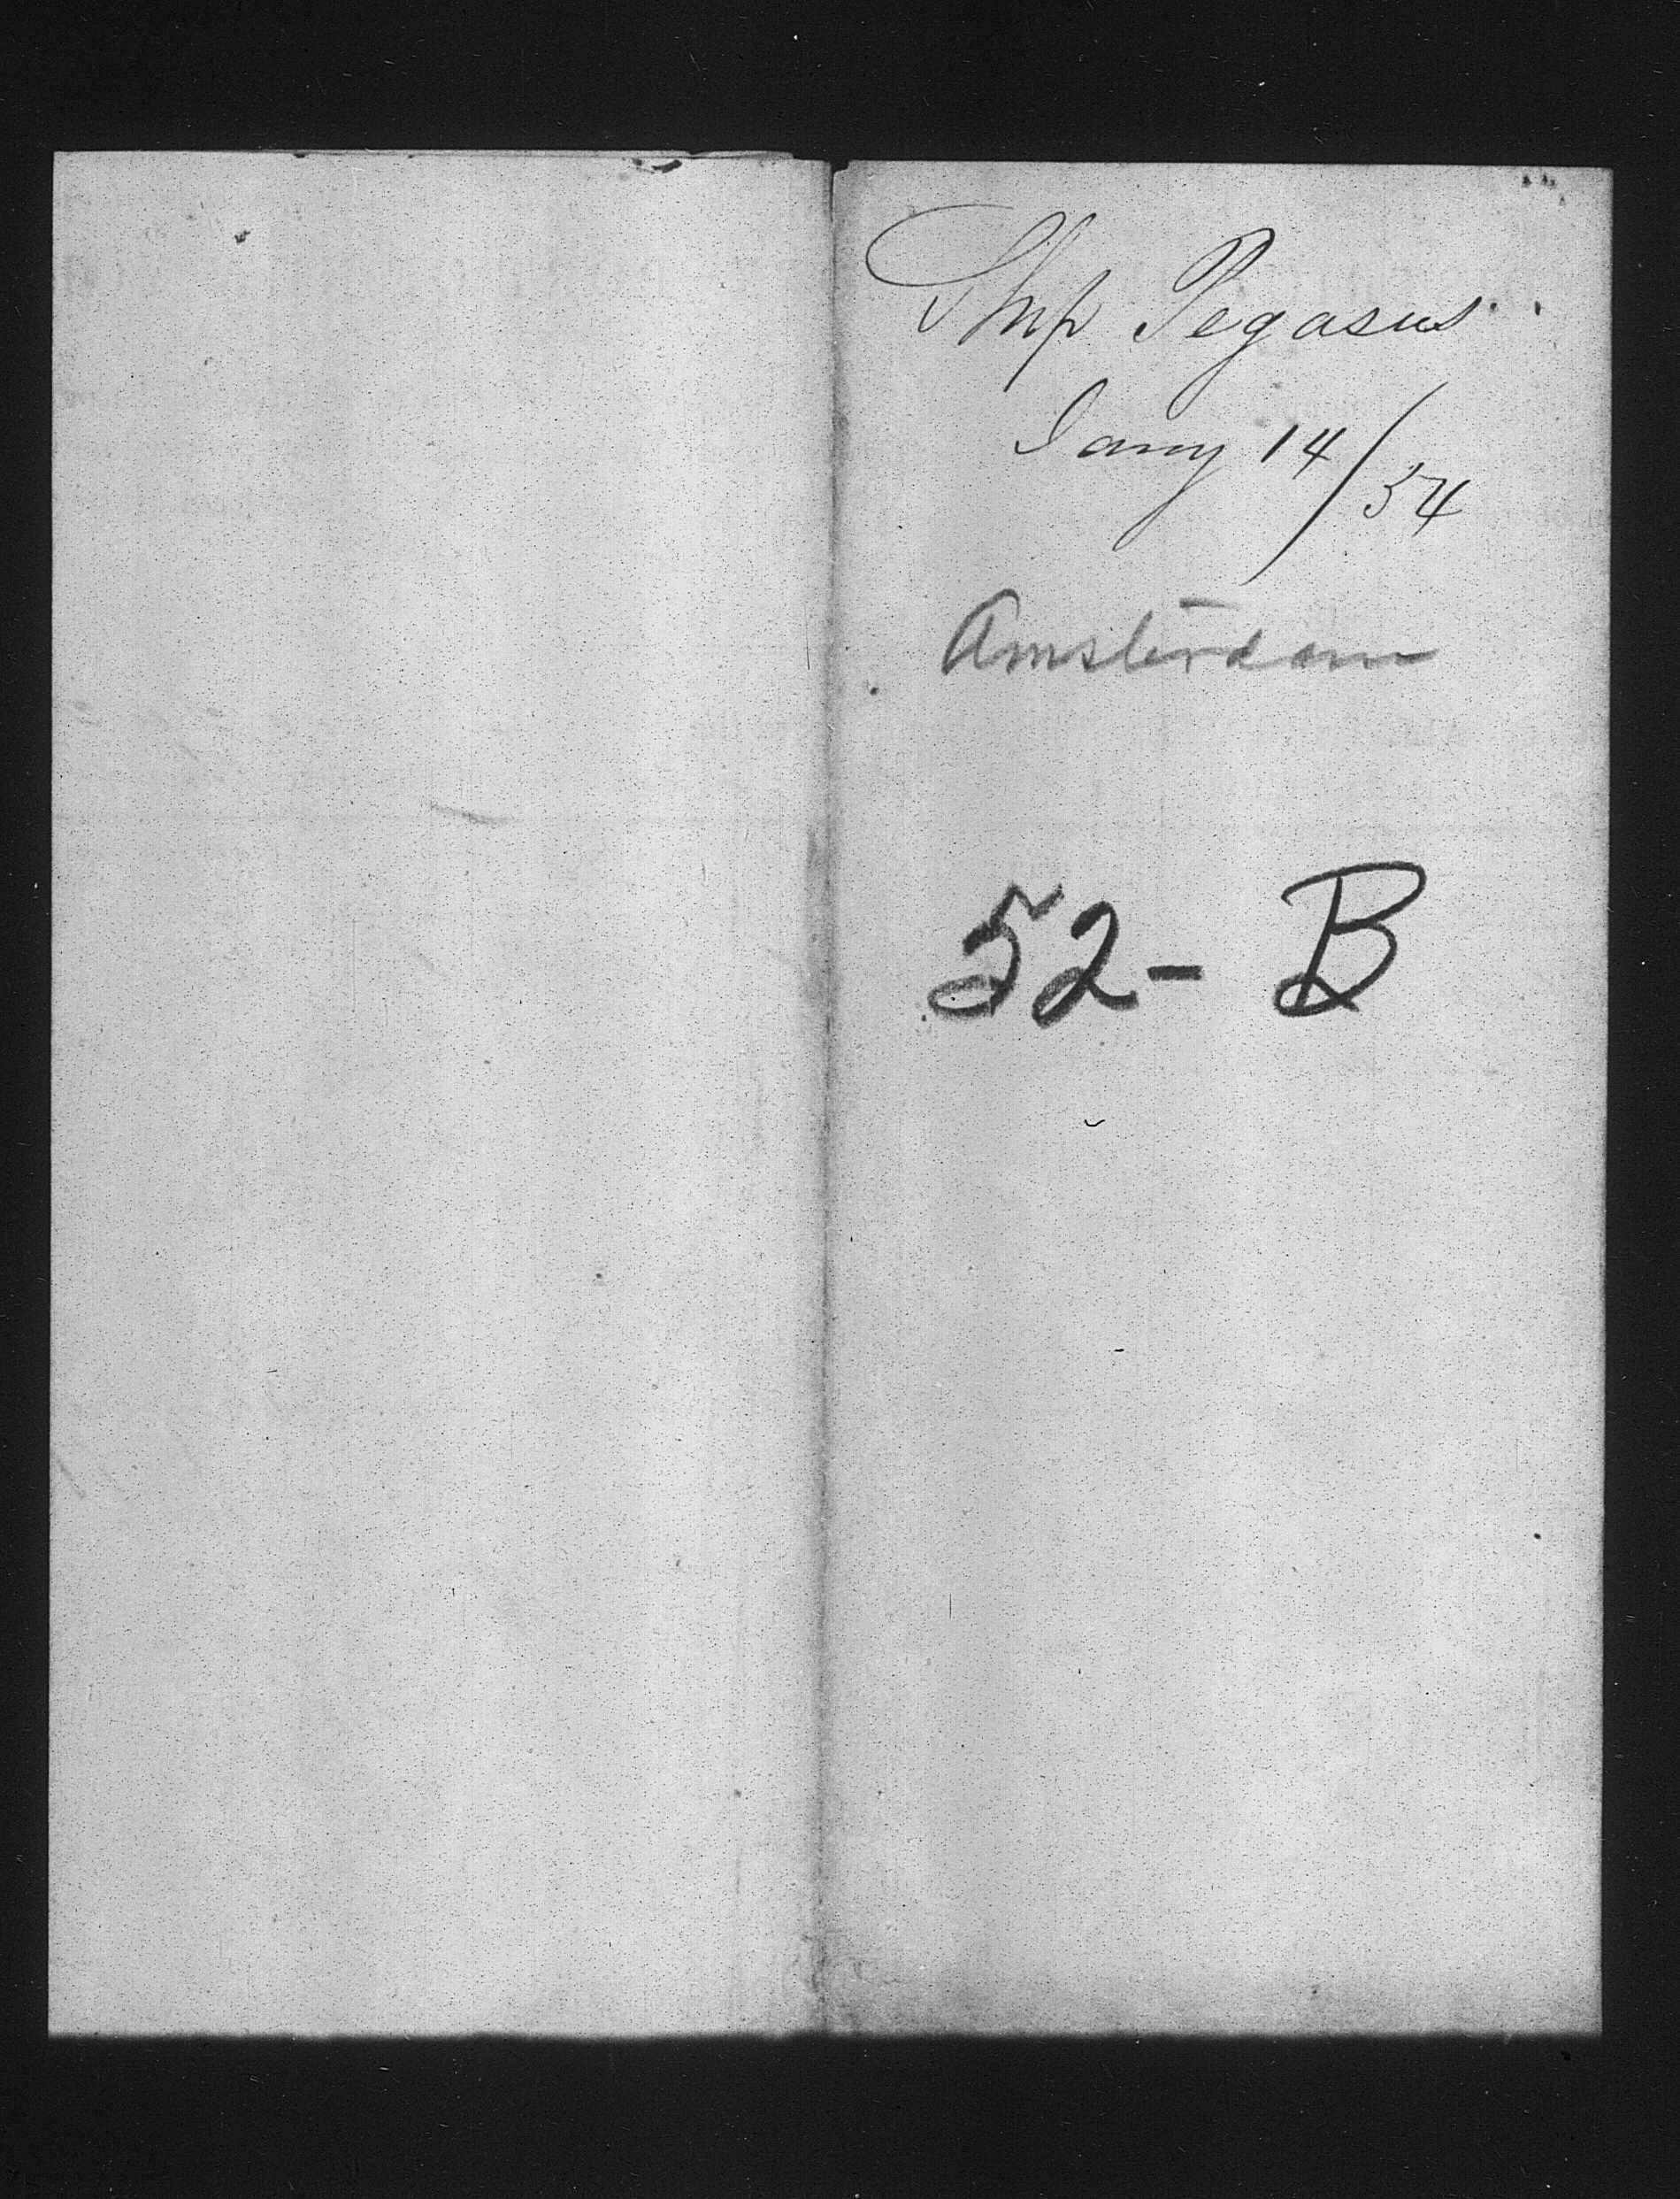 Ship Pegasus
Jany 14/54
Amsterdam
52-B